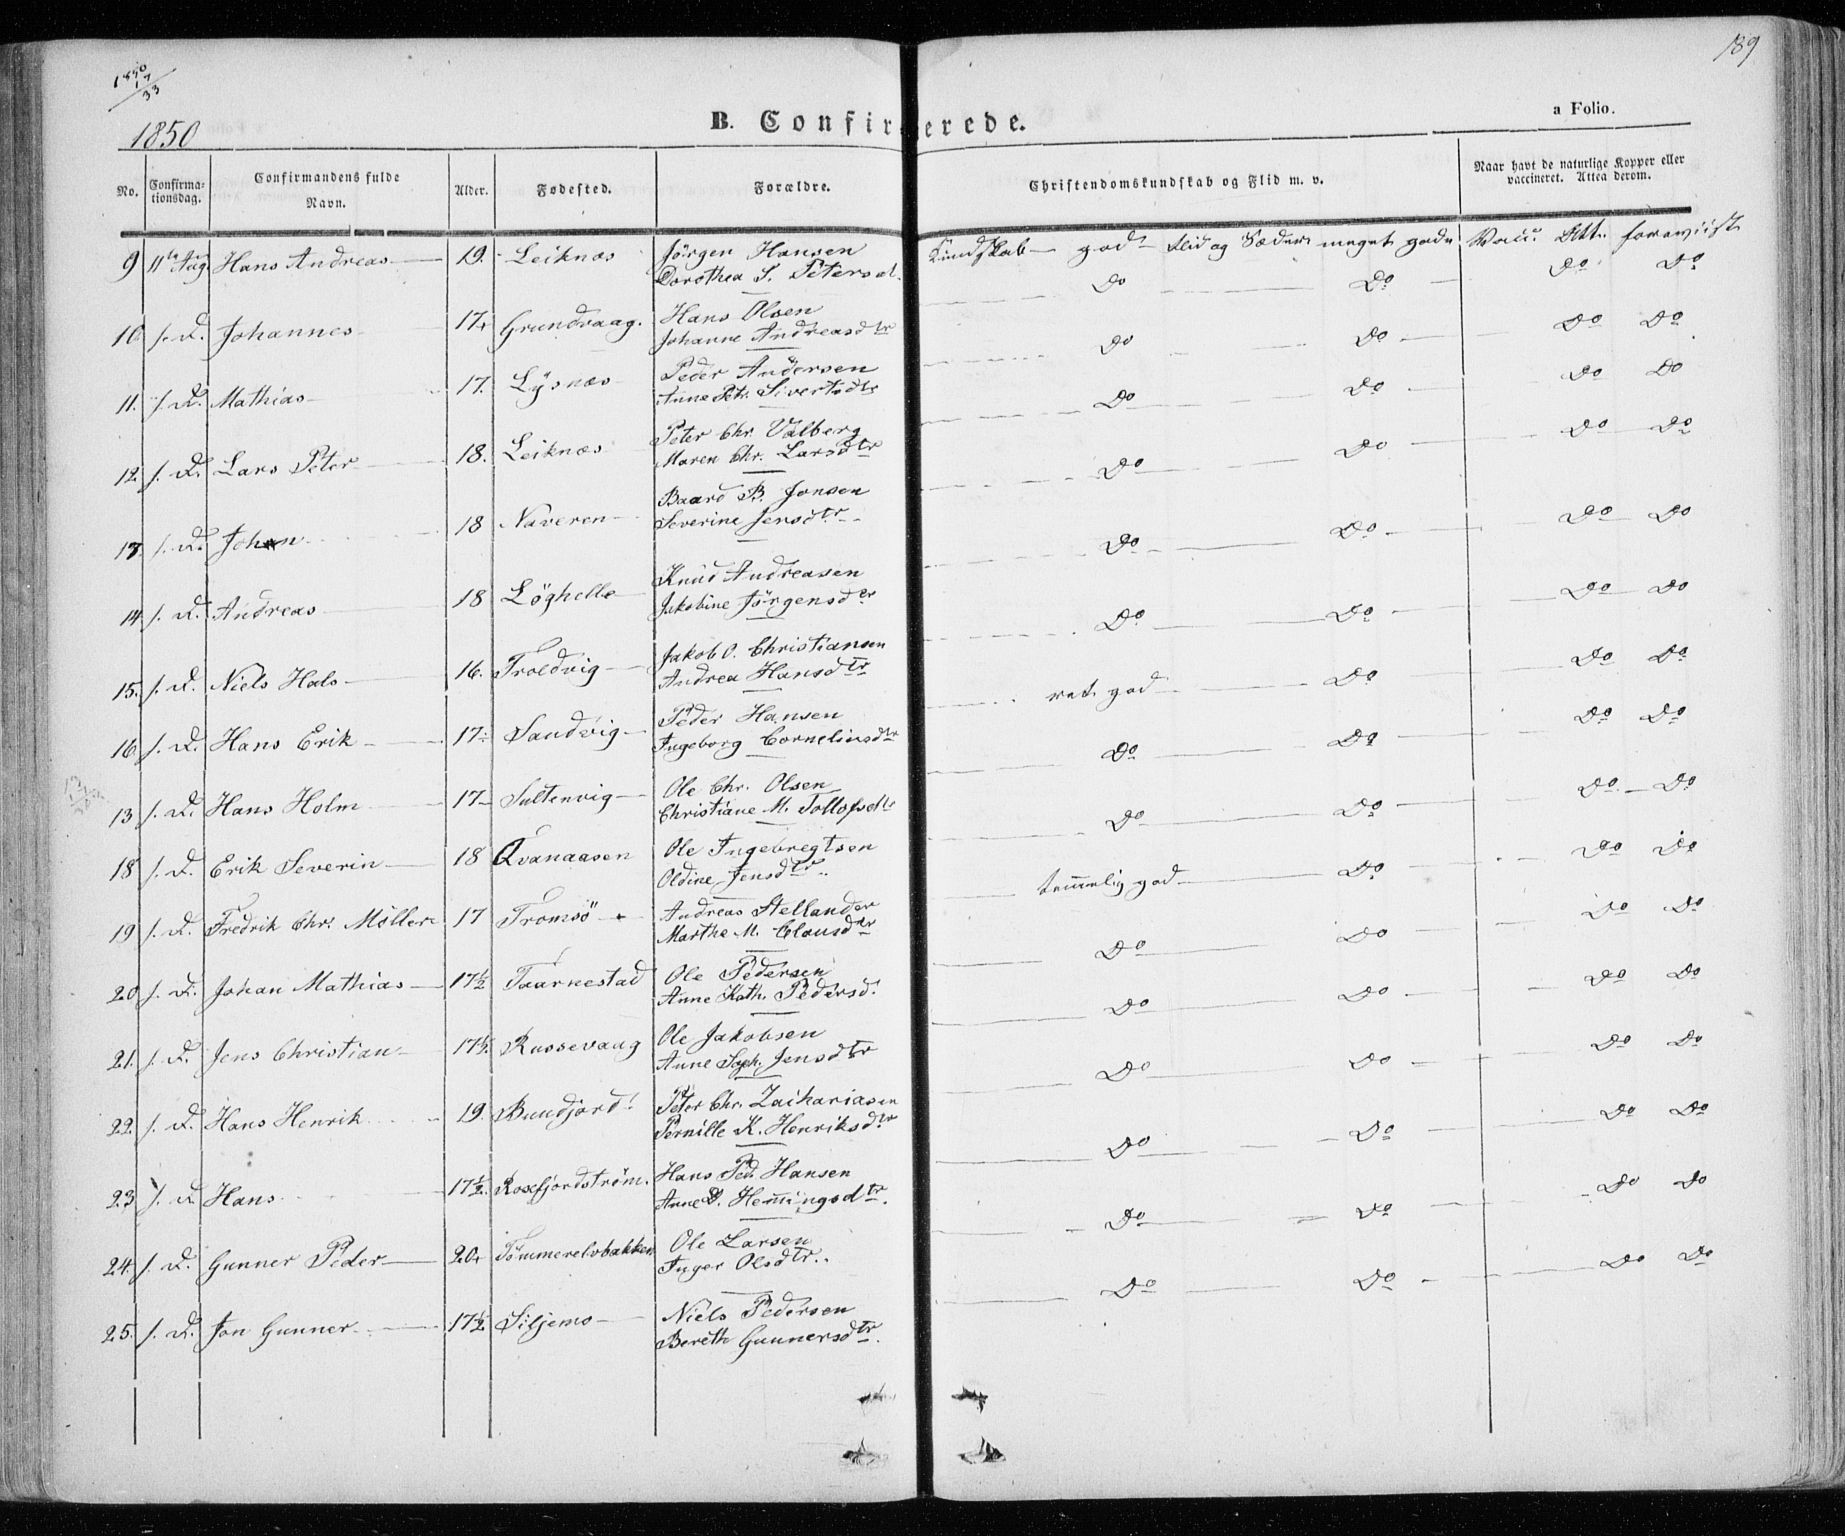 189
1850
17
33
1850
B. Confirmerede.
a Folio.
No. Confirmationsdag. Confirmandens fulde Navn. Alder. Fødested. Forældre. Christendomskundskab og Flid m. v. Naar havt de naturlige Kopper eller vaccineret. Attea derom.
9 11te Aug Hans Andreas 19. Leiknæs Jörgen Hansen Kundskab god Flid og Sæder meget gode Vacc. Att. foreviist
Dorothea S. Petersd.
10 s. D. Johannes 17. Grundvaag. Hans Olsen Do Do Do Do
Johanne Andreasdtr
11. s. D. Mathias 17. Lysnæs Peder Andersen Do Do Do Do
Anne Petr. Sivertsdtr
12. s. D. Lars Peter 18. Leiknæs Peter Chr. Valberg Do Do Do Do
Maren Chr. Larsdtr
13. s. D. Johan 18 Naveren Baard B. Jonsen Do Do Do Do
Severine Jensdtr
14 s. D. Andreas 18 Löghelle Knud Andreasen Do Do Do Do
Jakobine Jörgensdtr
15. s. D. Niels Hals 16. Troldvig Jakob O. Christiansen Do Do Do Do
Andrea Hansdtr
16 s. D. Hans Erik 17 Sandvig Peder Hansen ret god Do Do Do
Ingeborg Corneliusdtr
13 s. D. Hans Holm 17 Sultenvig Ole Chr. Olsen Do Do Do Do
Christiane M. Tollefsdtr
18 s. D. Erik Severin 18 Qvanaasen Ole Ingebregtsen Do Do Do Do
Oldine Jensdtr
19 s. D. Fredrik Chr. Möller 17 Tromsö Andreas Stellander temmelig god Do Do Do
Marthe M. Clausdtr
20 s. D. Johan Mathias 17½ Taarnestad Ole Pedersen Do Do Do Do
Anne Kath. Pedersd.
21. s. D. Jens Christian 17½ Russevaag Ole Jakobsen Do Do Do Do
Anne Soph. Jensdtr
22. s. D. Hans Henrik 19. Bundjord Peter Chr. Zachariasen Do Do Do Do
Pernille K. Henriksdtr
23 s. D. Hans 17½ Rossfjordström. Hans Ped. Hansen Do Do Do Do
Anne D. Hemingsdtr.
24. s. D. Gunner Peder 20. Tömmerelvbakken Ole Larsen Do Do Do Do
Inger Olsdtr.
25. s. D. Jon Gunner 17½ Siljemo Niels Pedersen Do Do Do Do
Bereth Gunnersdtr.